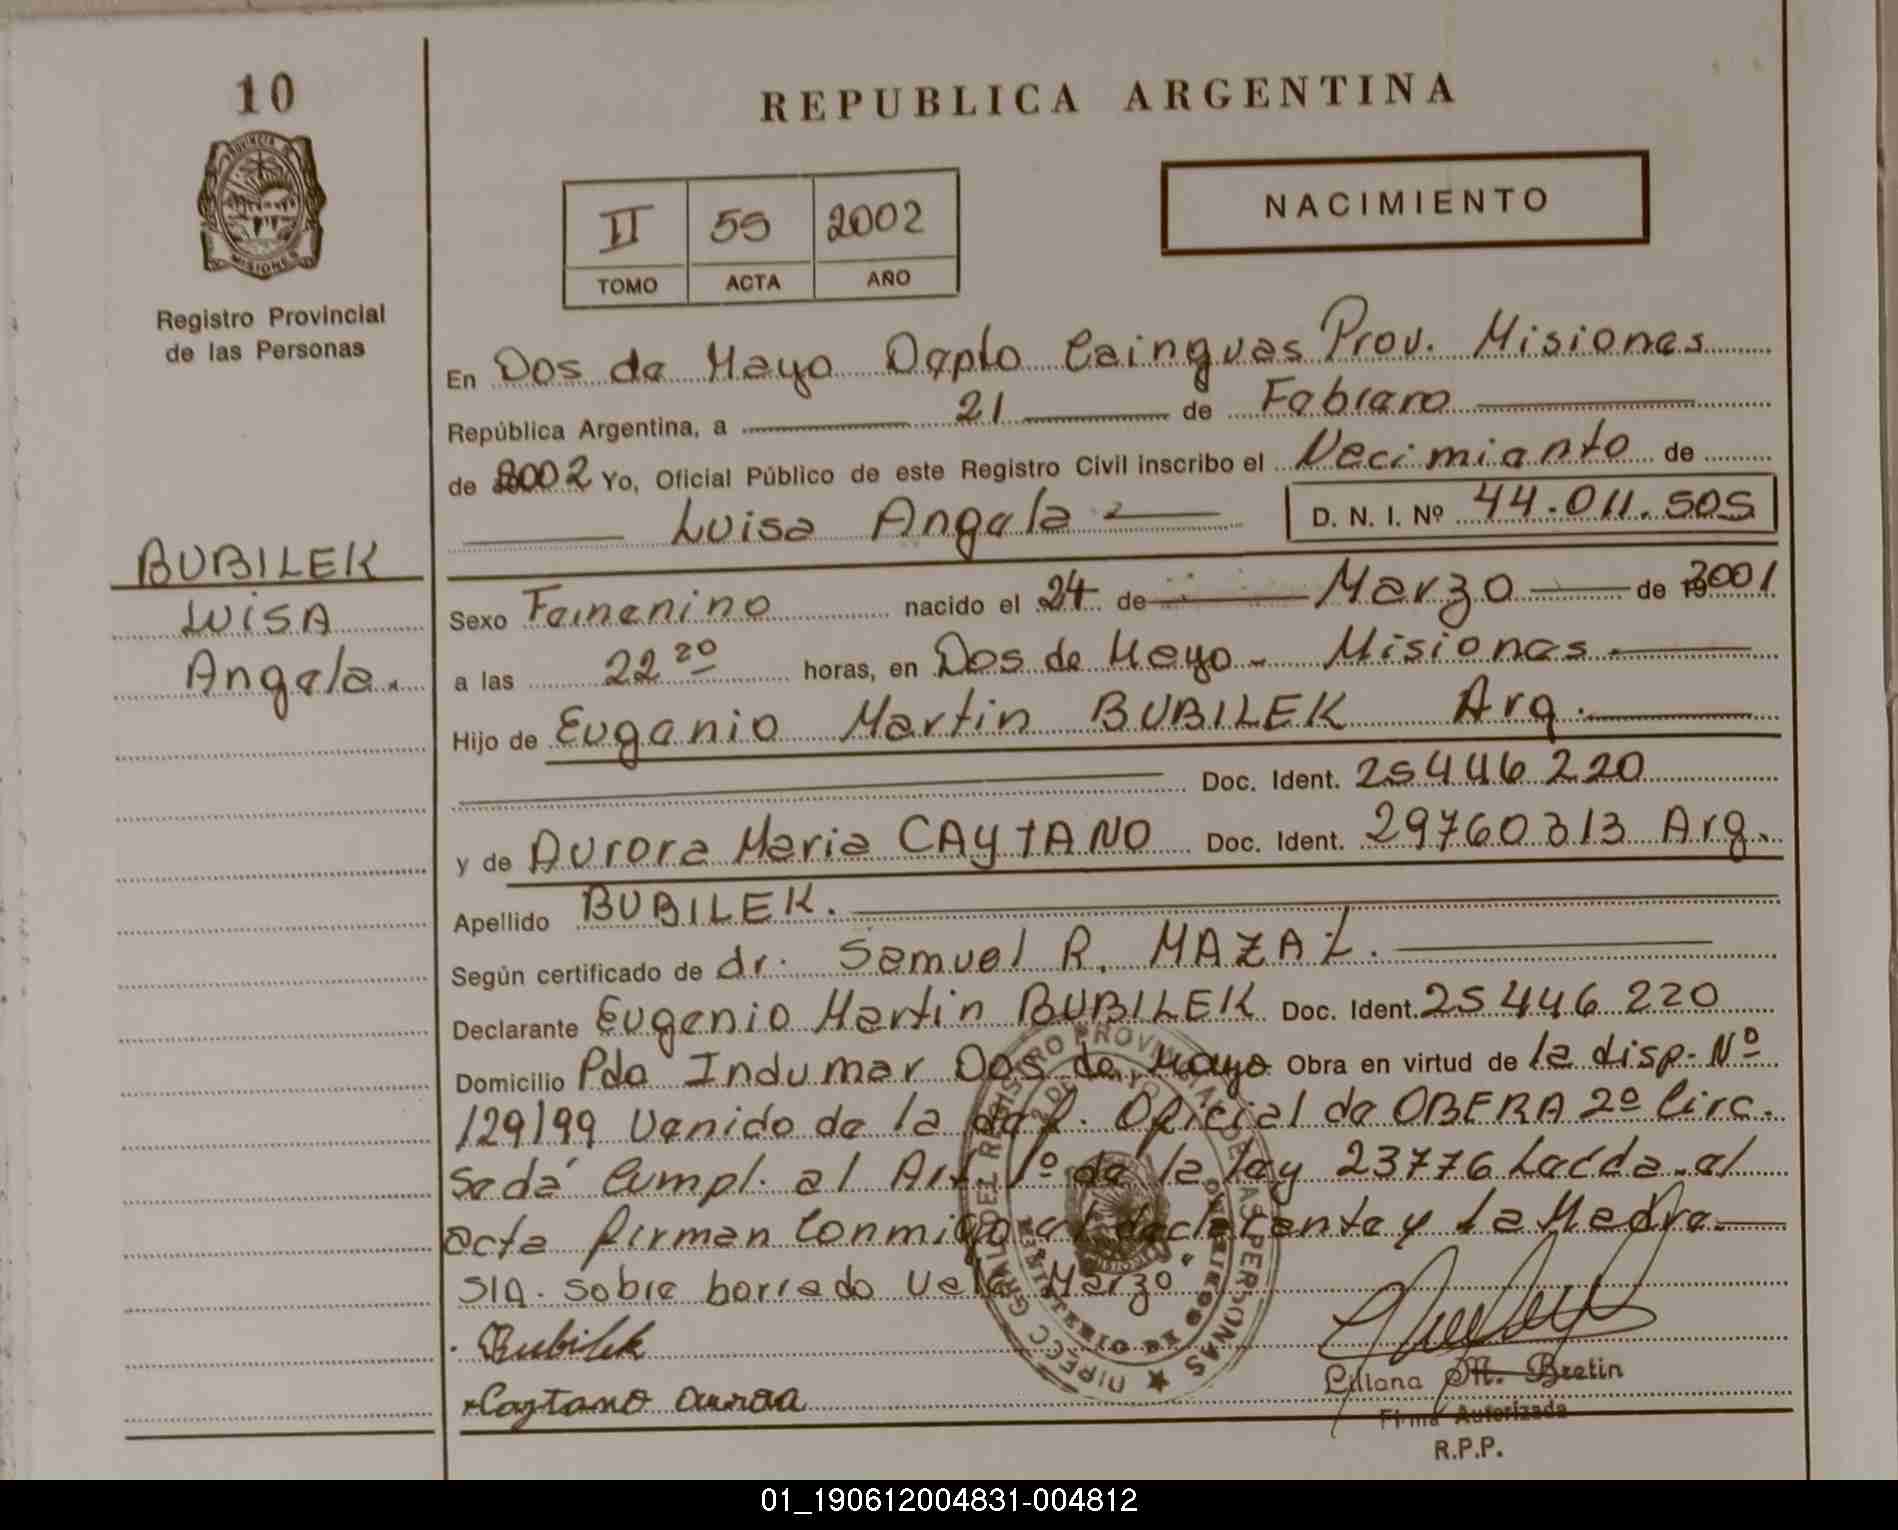 10
REPUBLICA ARGENTINA
PROVINCIA
MISIONES
Registro Provincial
de las Personas
II 55 2002
TOMO ACTA AÑO
NACIMIENTO
En Dos de Mayo Depto Cainguas Prov. Misiones
República Argentina, a 21 de Febrero
de 2002 Yo, Oficial Público de este Registro Civil inscribo el Nacimiento de
Luisa Angela D. N. I. Nº 44.011.505
BUBILEK
LUISA
Angela.
Sexo Femenino nacido el 24 de Marzo de 2001
a las 22 20 horas, en Dos de Mayo - Misiones
Hijo de Eugenio Martin BUBILEK Arg.
Doc. Ident. 25446220
y de Aurora Maria CAYTANO Doc. Ident. 29760313 Arg.
Apellido BUBILEK.
Según certificado de dr. Samuel R. MAZAL.
Declarante Eugenio Martin BUBILEK Doc. Ident. 25446220
Domicilio Pdo Indumar Dos de Mayo Obra en virtud de la disp. Nº
129/99 Venido de la Oficial de OBERA 2º Circ.
Se dá Cumpl. al Art. 1º de la ley 23776 Leida el
acta firman Conmigo el declarante y la Madre
S/A. Sobre borrado Vale Marzo
Bubilek
Caytano aurora
Liliana M. Bretin
Firma Autorizada
R.P.P.
01_190612004831-004812